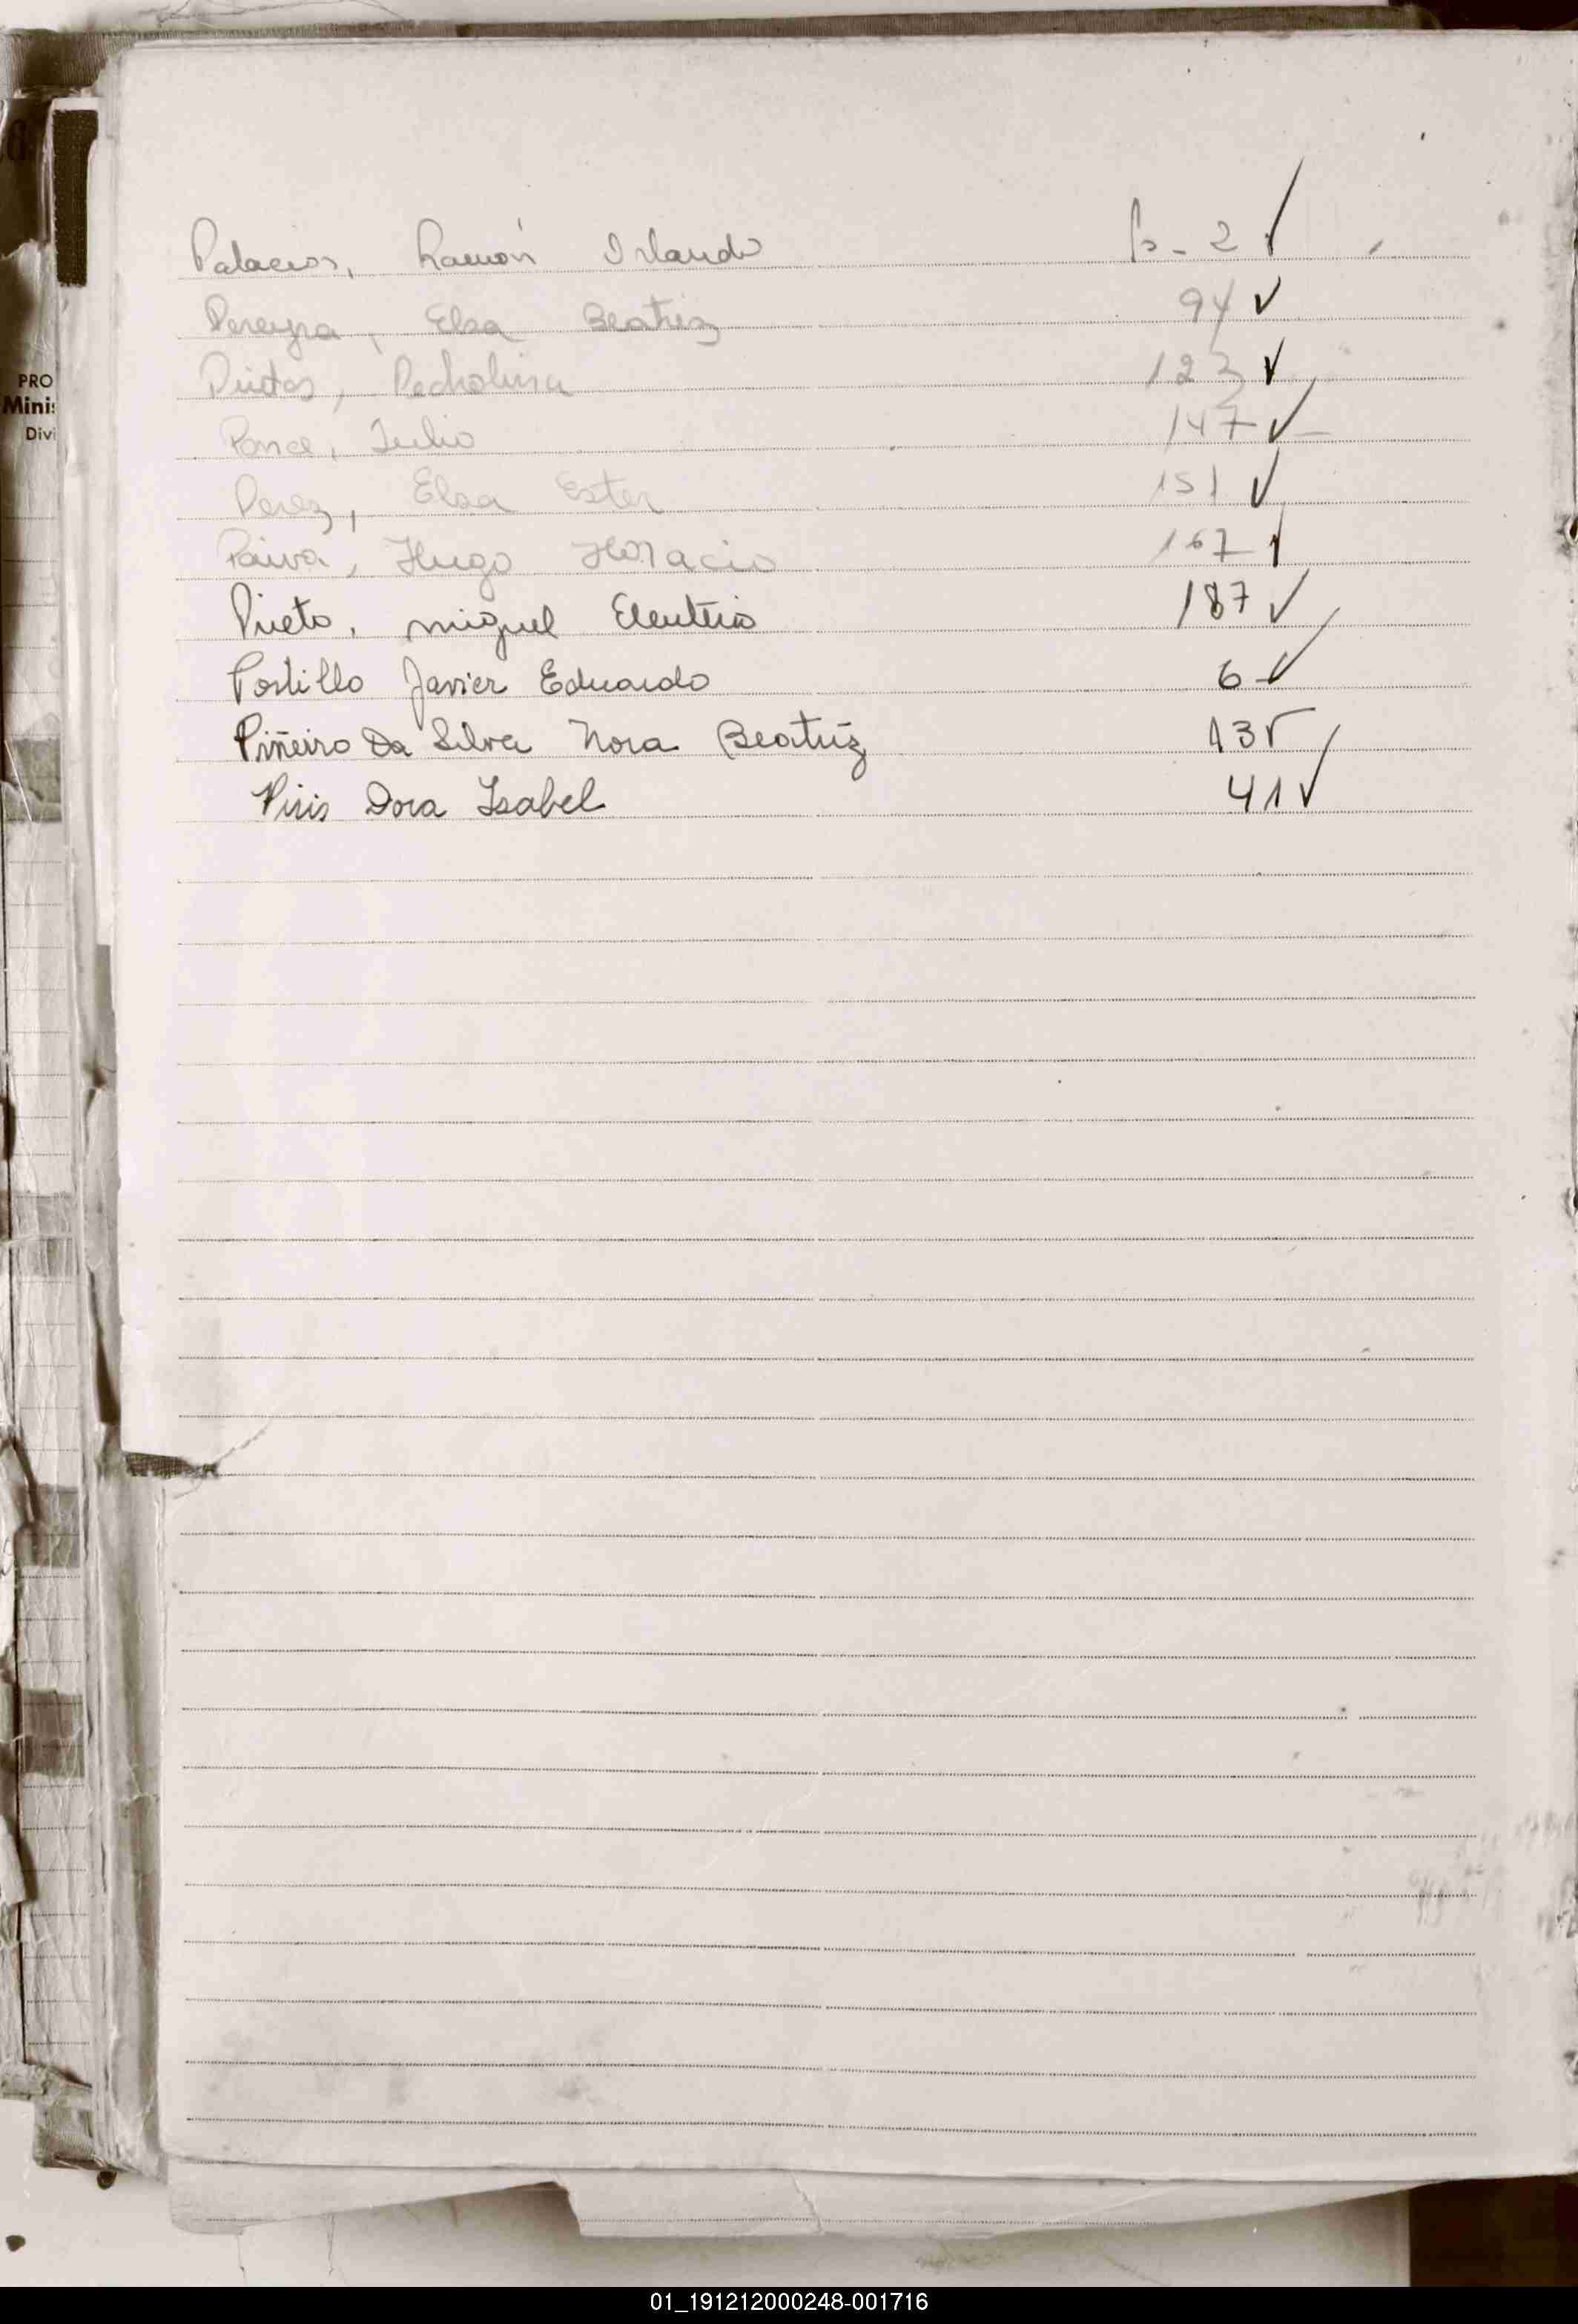 Palacios, Ramón Orlando fs - 2 ✓
Pereyra, Elsa Beatriz 94 ✓
123 ✓
Ponce, Julio 147 ✓
Perez, Elsa Ester 151 ✓
Paiva, Hugo Horacio 167 ✓
Prieto, miguel 187 ✓
Portillo Javier Eduardo 6 ✓
Piñeiro Da Silva Nora Beatriz 135
Piris Dora Isabel 41 ✓
PRO
Minis
Divi
01_191212000248-001716